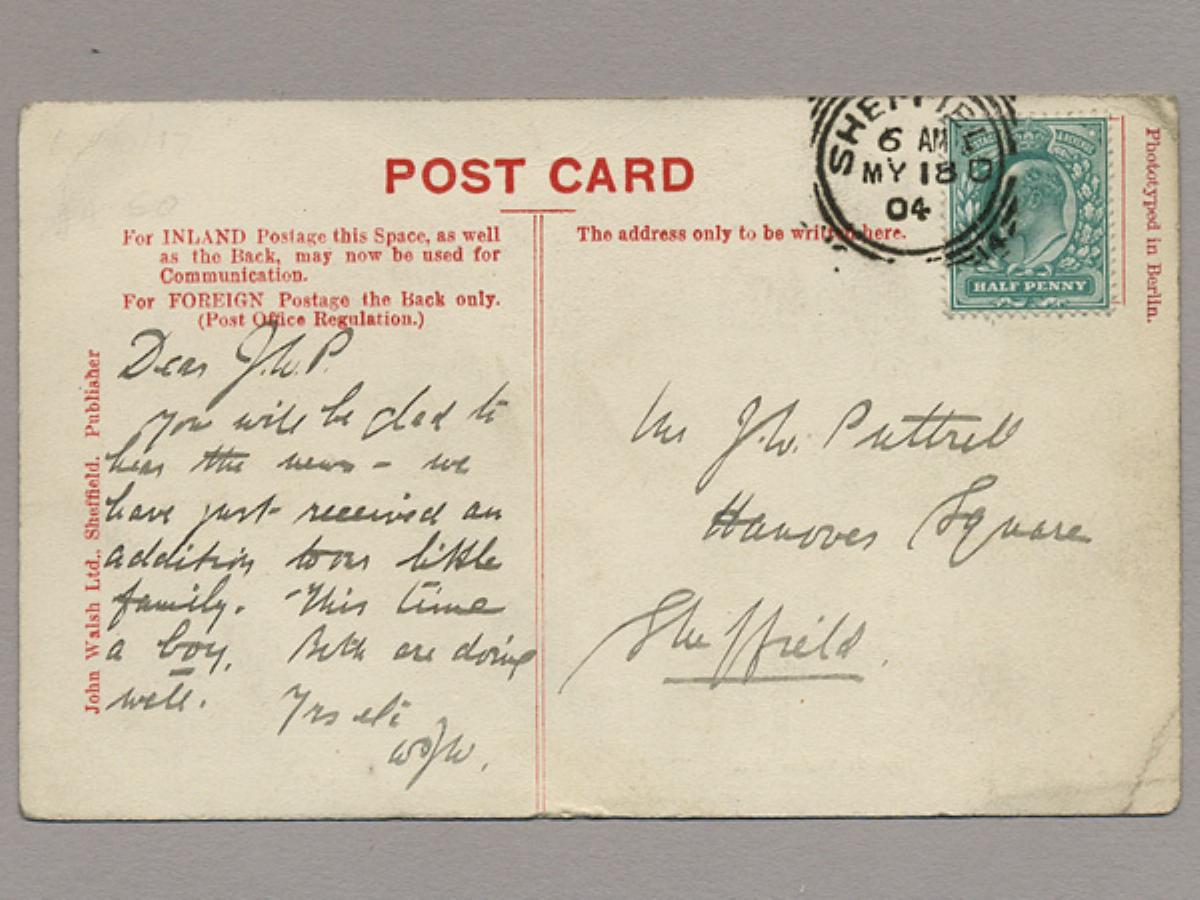 POST CARD
For INLAND Postage this Space, as well
as the Back, may now be used for
Communication.
For FOREIGN Postage the Back only.
(Post Office Regulation.)
The address only to be written here.
SHEFFIELD
6 AM
MY 18
04
HALF PENNY
Phototyped in Berlin.
John Walsh Ltd., Sheffield. Publisher
Dear J.W.P.
You will be glad to
hear the news – we
have just received an
addition to our little
family. This time
a boy. Both are doing
well. Yrs etc
WJW.
Mr J.W. Puttrell
Hanover Square
Sheffield.